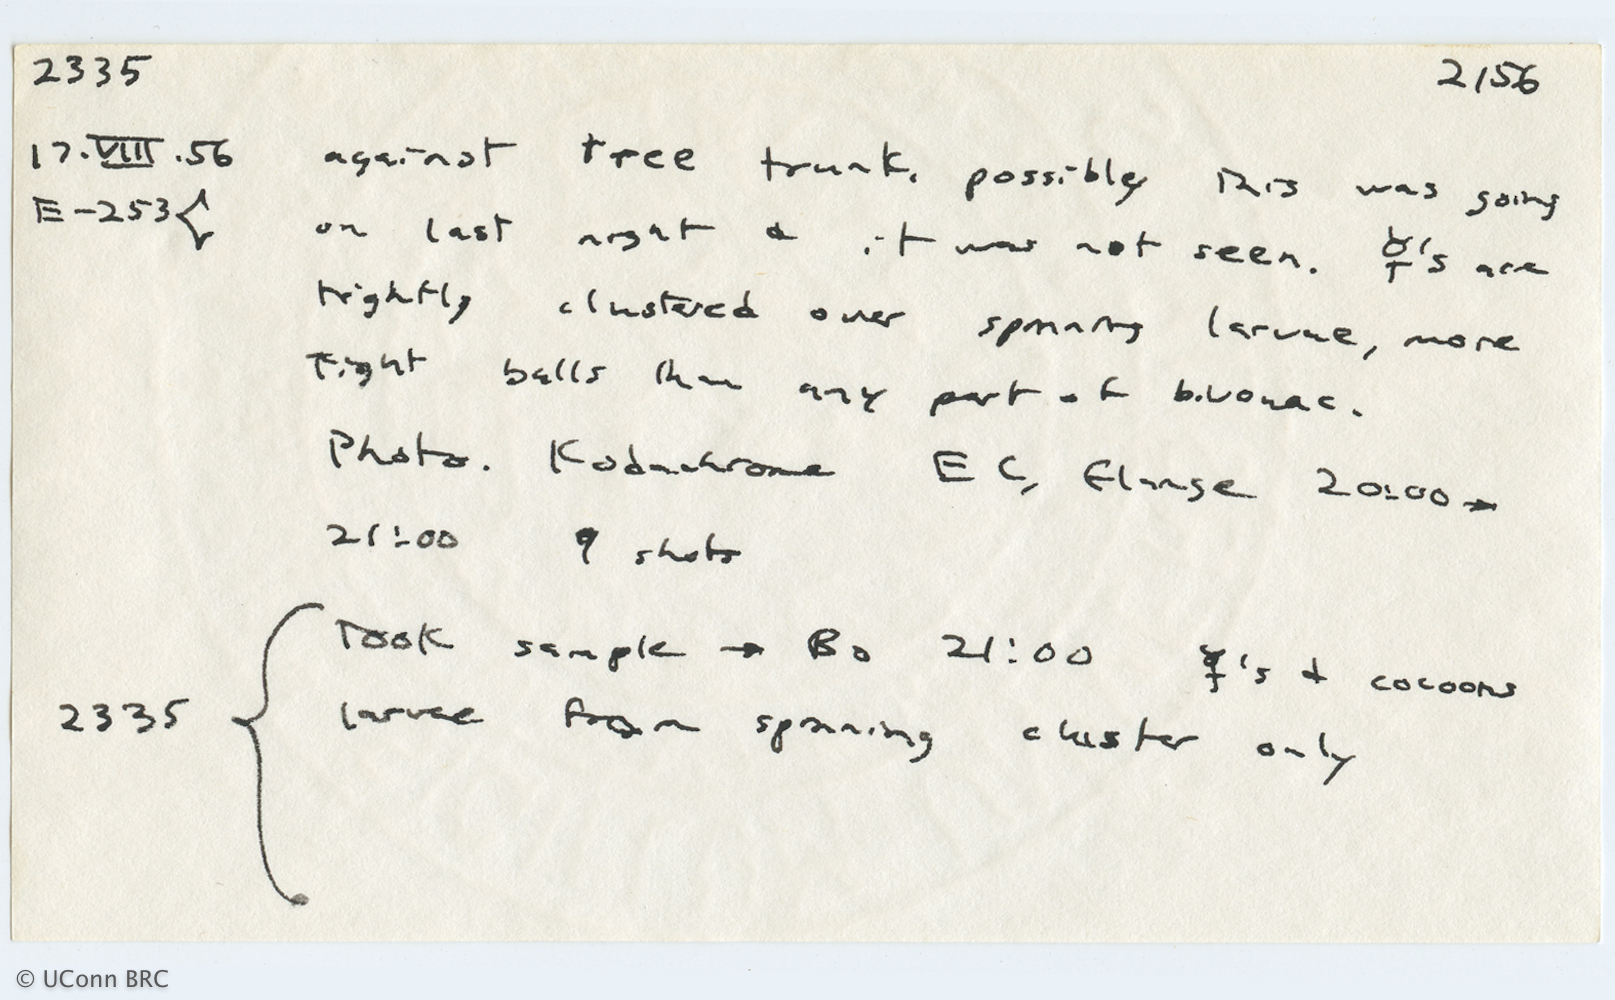 2335 2156
17.VIII.56 against tree trunk, possibly this was going
E-253{ on last night & it was not seen. ☿'s are
tightly clustered over spinning larvae, more
tight balls than any part of bivouac.
Photo. Kodachrome E C, Elange 20:00→
21:00 9 shots
Took sample → Bo 21:00 ☿'s & cocoons
2335 { larvae from spinning cluster only
© UConn BRC